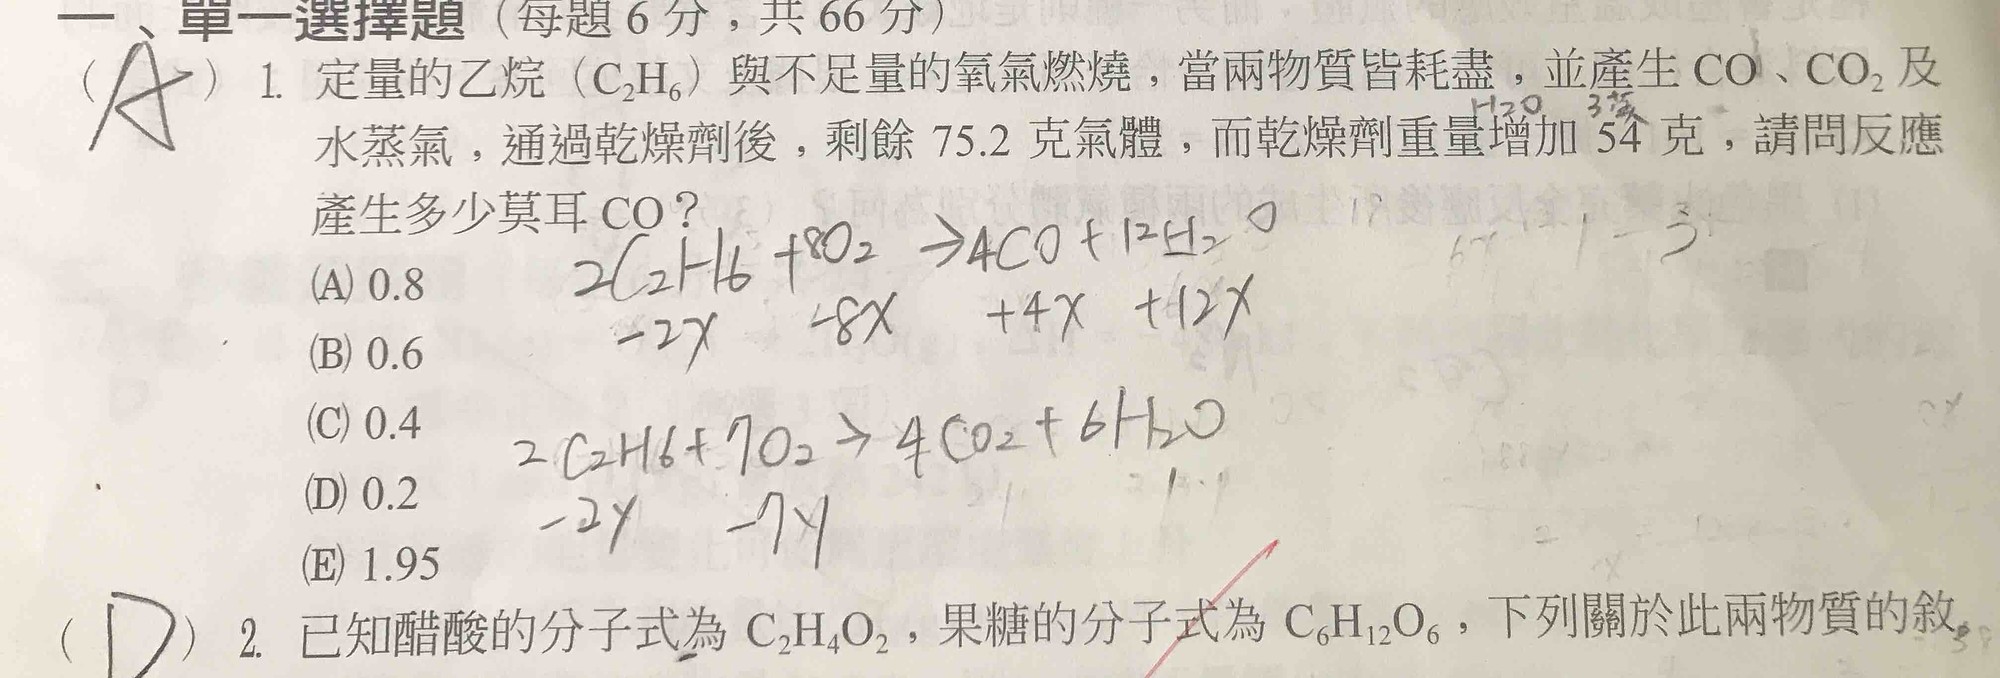 一、單一選擇題（每題 6 分，共 66 分）
（A）1. 定量的乙烷（C₂H₆）與不足量的氧氣燃燒，當兩物質皆耗盡，並產生 CO、CO₂ 及
H2O
水蒸氣，通過乾燥劑後，剩餘 75.2 克氣體，而乾燥劑重量增加 54 克，請問反應
產生多少莫耳 CO？
2C2H6 + 8O2 → 4CO + 12H2O
(A) 0.8
-2x -8x +4x +12x
(B) 0.6
(C) 0.4
2C2H6 + 7O2 → 4CO2 + 6H2O
(D) 0.2
-2y -7y
(E) 1.95
（D）2. 已知醋酸的分子式為 C₂H₄O₂，果糖的分子式為 C₆H₁₂O₆，下列關於此兩物質的敘